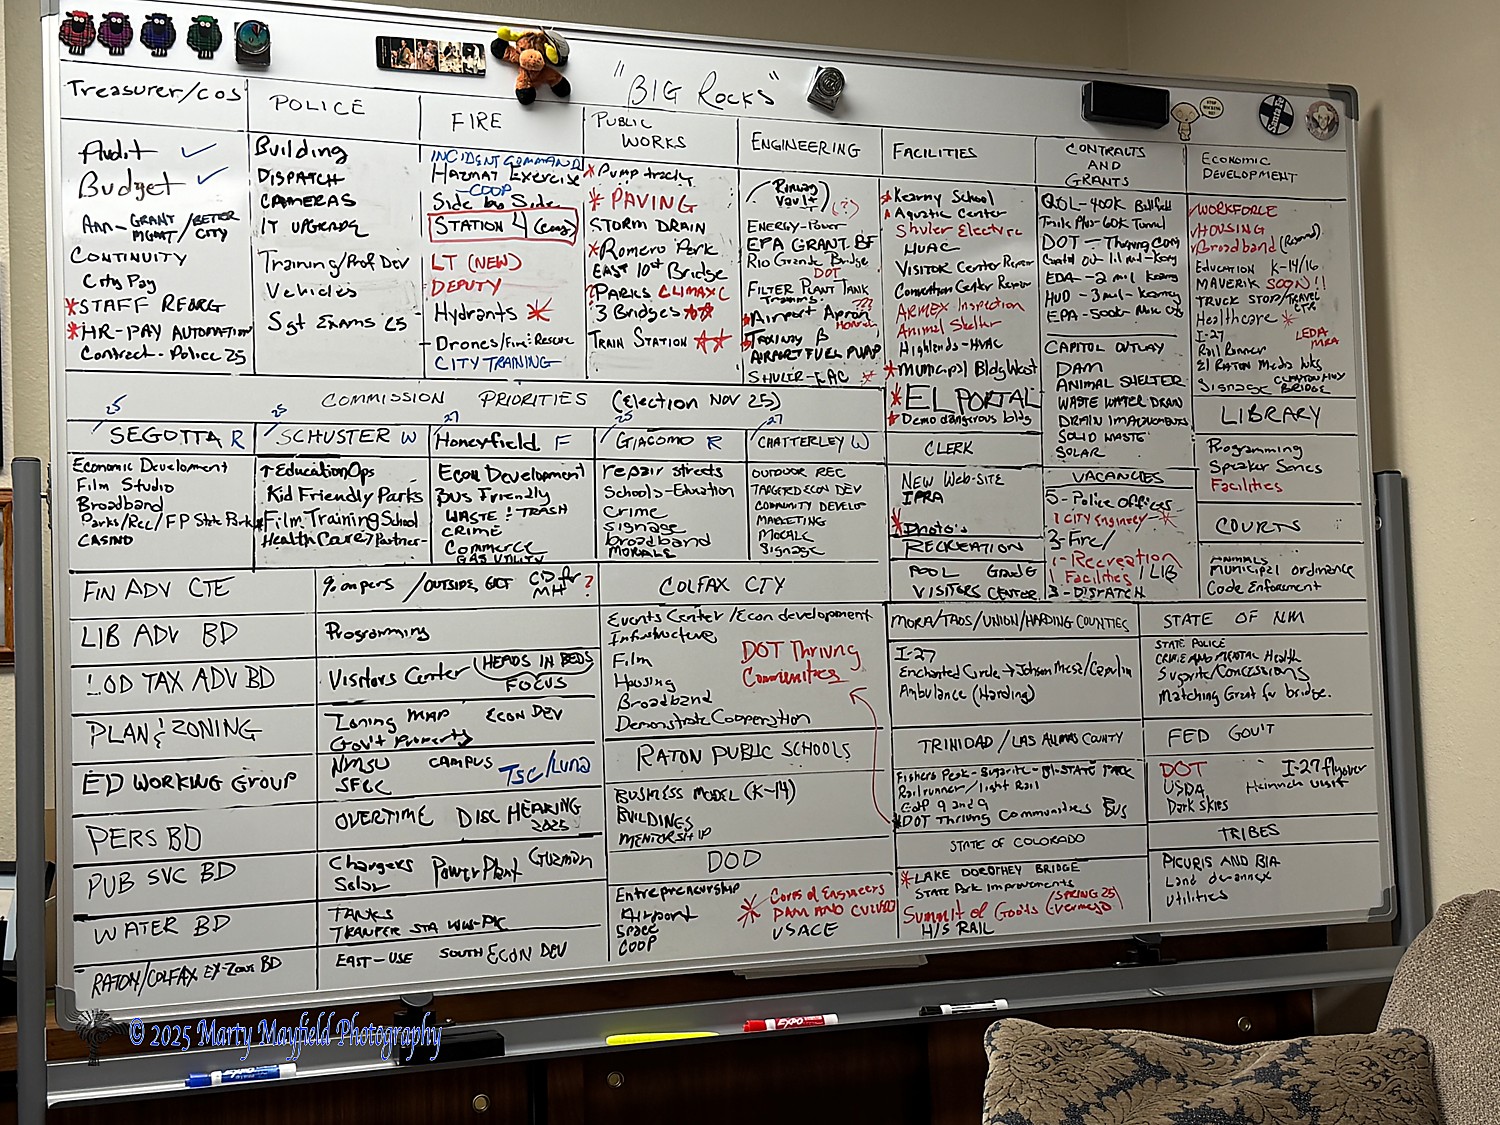 "BIG ROCKS"
Treasurer/COS
Audit ✓
Budget ✓
Ann-GRANT MGMT/BETER CITY
CONTINUITY
City Pay
*STAFF REORG
*HR-PAY AUTOMATION
Contract-Police 25
POLICE
Building
DISPATCH
CAMERAS
IT UPGRADE
Training/Prof Dev
Vehicles
Sgt Exams 25
FIRE
INCIDENT COMMAND
HAZMAT Exercise
-COOP
Side by Side
STATION 4
LT (NEW)
DEPUTY
Hydrants *
-Drones/Fire: Rescue
CITY TRAINING
PUBLIC
WORKS
*Pump track
*PAVING
STORM DRAIN
*Romero Park
EAST 10st Bridge
PARKS CLIMAX C
3 Bridges **
TRAIN STATION **
ENGINEERING
(?)
ENERGY-Power
EPA GRANT BF
Rio Grande Bridge
DOT
FILTER PLANT TANK
*Airport Apron
Taxiway B
AIRPORT FUEL PUMP
SHULER-EAC *
FACILITIES
*Kearny School
Aquatic Center
Shuler Electric
HVAC
VISITOR Center Repair
Convention Center Repair
ARMEX Inspection
Animal Shelter
Highlands-HVAC
*Municipal Bldg West
*EL PORTAL
*Demo dangerous bldg
CONTRACTS
AND
GRANTS
QOL-400K Ballfield
DOT - Thriving Com
EDA-2 mil Kearny
HUD-3 mil-Kearny
CAPITOL OUTLAY
DAM
ANIMAL SHELTER
WASTE WATER DRAIN
DRAIN IMPROVEMENTS
SOLID WASTE
SOLAR
VACANCIES
5-Police Offices
1 CITY Engineer *
3-Fire/
1-Recreation
1 Facilities / LIB
3-DISPATCH
ECONOMIC
DEVELOPMENT
WORKFORCE
HOUSING
Broadband
EDUCATION K-14/16
MAVERIK SOON!!
TRUCK STOP/TRAVEL CTR
Healthcare *
I-27
LEDA
MRA
Rail Runner
El RATON Media Wks
Signage CLAYTON HWY BRIDGE
LIBRARY
Programming
Speaker Series
Facilities
COURTS
ANIMALS
Municipal ordinance
Code Enforcement
COMMISSION PRIORITIES (Election Nov 25)
25
SEGOTTA R
Economic Development
Film Studio
Broadband
Parks/Rec/FP State Park
CASINO
25
SCHUSTER W
↑Education Ops
Kid Friendly Parks
*Film Training School
HealthCare/Partner-
27
Honeyfield F
Econ Development
BUS Friendly
WASTE ! TRASH
CRIME
Commerce
GAS UTILITY
25
GIACOMO R
repair streets
Schools-Education
Crime
signage
broadband
MORALE
27
CHATTERLEY W
OUTDOOR REC
TARGETED ECON DEV
COMMUNITY DEVELO
MARKETING
MOCALE
Signage
CLERK
NEW WEB-SITE
IPRA
*Photo's
RECREATION
POOL Grade
VISITORS CENTER
FIN ADV CTE
/OUTSIDE, GRT CD for MH?
LIB ADV BD
Programming
LOD TAX ADV BD
Visitors Center (HEADS IN BEDS)
FOCUS
PLAN & ZONING
Zoning MAP ECON DEV
Gov't Property
ED WORKING GROUP
NMSU CAMPUS TSC/Luna
SFCC
PERS BD
OVERTIME DISC HEARING
2025
PUB SVC BD
Chargers PowerPlant Guzman
Solar
WATER BD
TANKS
TRANFER STA
RATON/COLFAX EX-Zone BD
EAST-USE SOUTH ECON DEV
COLFAX CTY
Events Center/Econ development
Infrastructure
Film
Housing
Broadband
Demonstrate Cooperation
DOT Thriving
Communities
RATON PUBLIC SCHOOLS
BUSINESS MODEL (K-14)
BUILDINGS
MENTORSHIP
DOD
Entrepreneurship
Airport
Space
COOP
*Corps of Engineers
USACE
MORA/TAOS/UNION/HARDING COUNTIES
I-27
Ambulance (Harding)
TRINIDAD/LAS ANIMAS COUNTY
Fishers Peak-Sugarite-BI-STATE PARK
Railrunner/light Rail
*DOT Thriving Communities BUS
STATE OF COLORADO
*LAKE DOROTHEY BRIDGE
STATE Park Improvements
Summit of Goats (SPRING 25)
H/S RAIL
STATE OF NM
STATE POLICE
CRIME AND MENTAL Health
Sugarite/Concessions
Matching Grant for bridge.
FED GOV'T
DOT I-27 flyover
USDA Heinrich Visit
Dark skies
TRIBES
PICURIS AND BIA
Land de-annex
Utilities
© 2025 Marty Mayfield Photography
EXPO
EXPO
Santa Fe